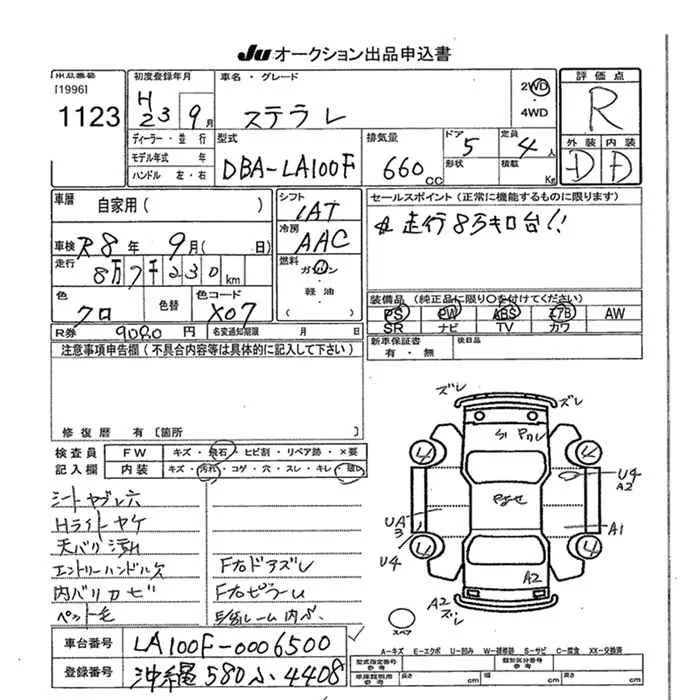 Ju オークション出品申込書
出品番号
[1996]
1123
初度登録年月
H 23 9月
車名・グレード
ステラ L
2WD
・4WD
評価点
R
外装 内装
D D
ディーラー・並行
モデル年式 年
ハンドル 左・右
型式
DBA-LA100F
排気量
660cc
ドア 5
形状
定員 4人
積載 Kg
車歴
自家用( )
シフト
IAT
セールスポイント(正常に機能するものに限ります)
走行8万キロ台!!
車検 R8年 9月( 日)
冷房
AAC
走行
8万7千230km
燃料
ガソリン
・軽油・
( )
色
クロ
色替
色コード
X07
装備品(純正品に限り○を付けてください)
PS PW ABS エアB AW
SR ナビ TV カワ
R券 9080円
名変通知期限 月 日
新車保証書
有・無
後日品
注意事項申告欄(不具合内容等は具体的に記入して下さい)
修復歴 有[箇所 ]
検査員
記入欄
FW キズ・飛石・ヒビ割・リペア跡・×要
内装 キズ・汚れ・コゲ・穴・スレ・キレ・
シートヤブレ穴
Hライトヤケ
天バリ汚れ
エントリーハンドル欠
内バリカビ
ペット毛
F右ドアズレ
F右ピラーU
ズレ
ズレ
U4
A2
UA
3
A1
U4
A2
A2
ズレ
スペア
車台番号 LA100F-0006500
登録番号 沖縄 580 ふ 4408
A-キズ E-エクボ U-凹み W-補修跡 S-サビ C-腐食 XX-交換済
型式指定番号
参考
類別区分番号
参考
車庫証明用
参考
長さ cm 幅 cm 高さ cm